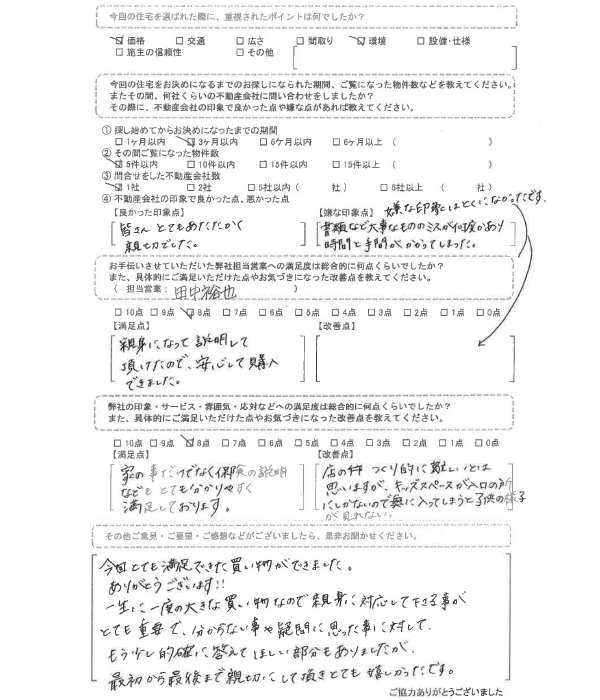 今回の住宅を選ばれた際に、重視されたポイントは何でしたか？
☑価格 □交通 □広さ □間取り ☑環境 □設備・仕様
□施主の信頼性 □その他
今回の住宅をお決めになるまでのお探しになられた期間、ご覧になった物件数などを教えてください。
またその間、何社くらいの不動産会社に問い合わせをしましたか？
その際に、不動産会社の印象で良かった点や嫌な点があれば教えてください。
① 探し始めてからお決めになったまでの期間
□1ヶ月以内 ☑3ヶ月以内 □6ケ月以内 □6ヶ月以上（ ）
② その間ご覧になった物件数
☑5件以内 □10件以内 □15件以内 □15件以上（ ）
③ 問合せをした不動産会社数
☑1社 □2社 □5社以内（ 社） □5社以上（ 社）
④ 不動産会社の印象で良かった点、悪かった点
【良かった印象点】
皆さん とてもあたたかく
親切でした。
【嫌な印象点】
嫌な印象とはとくになかったです。
書類など大事なもののミスが何度かあり
時間と手間がかかってしまった。
お手伝いさせていただいた弊社担当営業への満足度は総合的に何点くらいでしたか？
また、具体的にご満足いただけた点やお気づきになった改善点を教えてください。
（ 担当営業： 田中裕也 ）
□10点 □9点 ☑8点 □7点 □6点 □5点 □4点 □3点 □2点 □1点 □0点
【満足点】
親身になって 説明して
頂けたので、安心して購入
できました。
【改善点】
弊社の印象・サービス・雰囲気・応対などへの満足度は総合的に何点くらいでしたか？
また、具体的にご満足いただけた点やお気づきになった改善点を教えてください。
□10点 □9点 ☑8点 □7点 □6点 □5点 □4点 □3点 □2点 □1点 □0点
【満足点】
家の事だけでなく保険の説明
なども とても分かりやすく
満足しております。
【改善点】
店の件 つくり的に難しいとは
思いますが、キッズスペースが入口の所
にしかないので奥に入ってしまうと子供の様子
が見れない。
その他ご意見・ご要望・ご感想などがございましたら、是非お聞かせください。
今回とても満足できた買い物ができました。
ありがとうございます!!
一生に一度の大きな買い物なので親身に対応して下さる事が
とても重要で、分からない事や疑問に思った事に対して、
もう少し的確に答えてほしい部分もありましたが、
最初から最後まで親切にして頂きとても嬉しかったです。
ご協力ありがとうございました